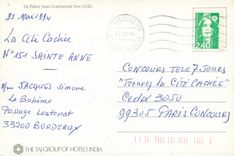 Taj Palace Inter-Continental New Delhi
31 Mai 1994
La Cité Cachée
N°151 SAINTE ANNE
Mme JACQUES Simone
La Bohème
Passage Lestonat
33200 BORDEAUX
2,40
CONCOURS TELE 7 JOURS
"Trouvez la CITÉ CACHÉE"
Cedex 3050
99305 PARIS CONCOURS
THE TAJ GROUP OF HOTELS INDIA